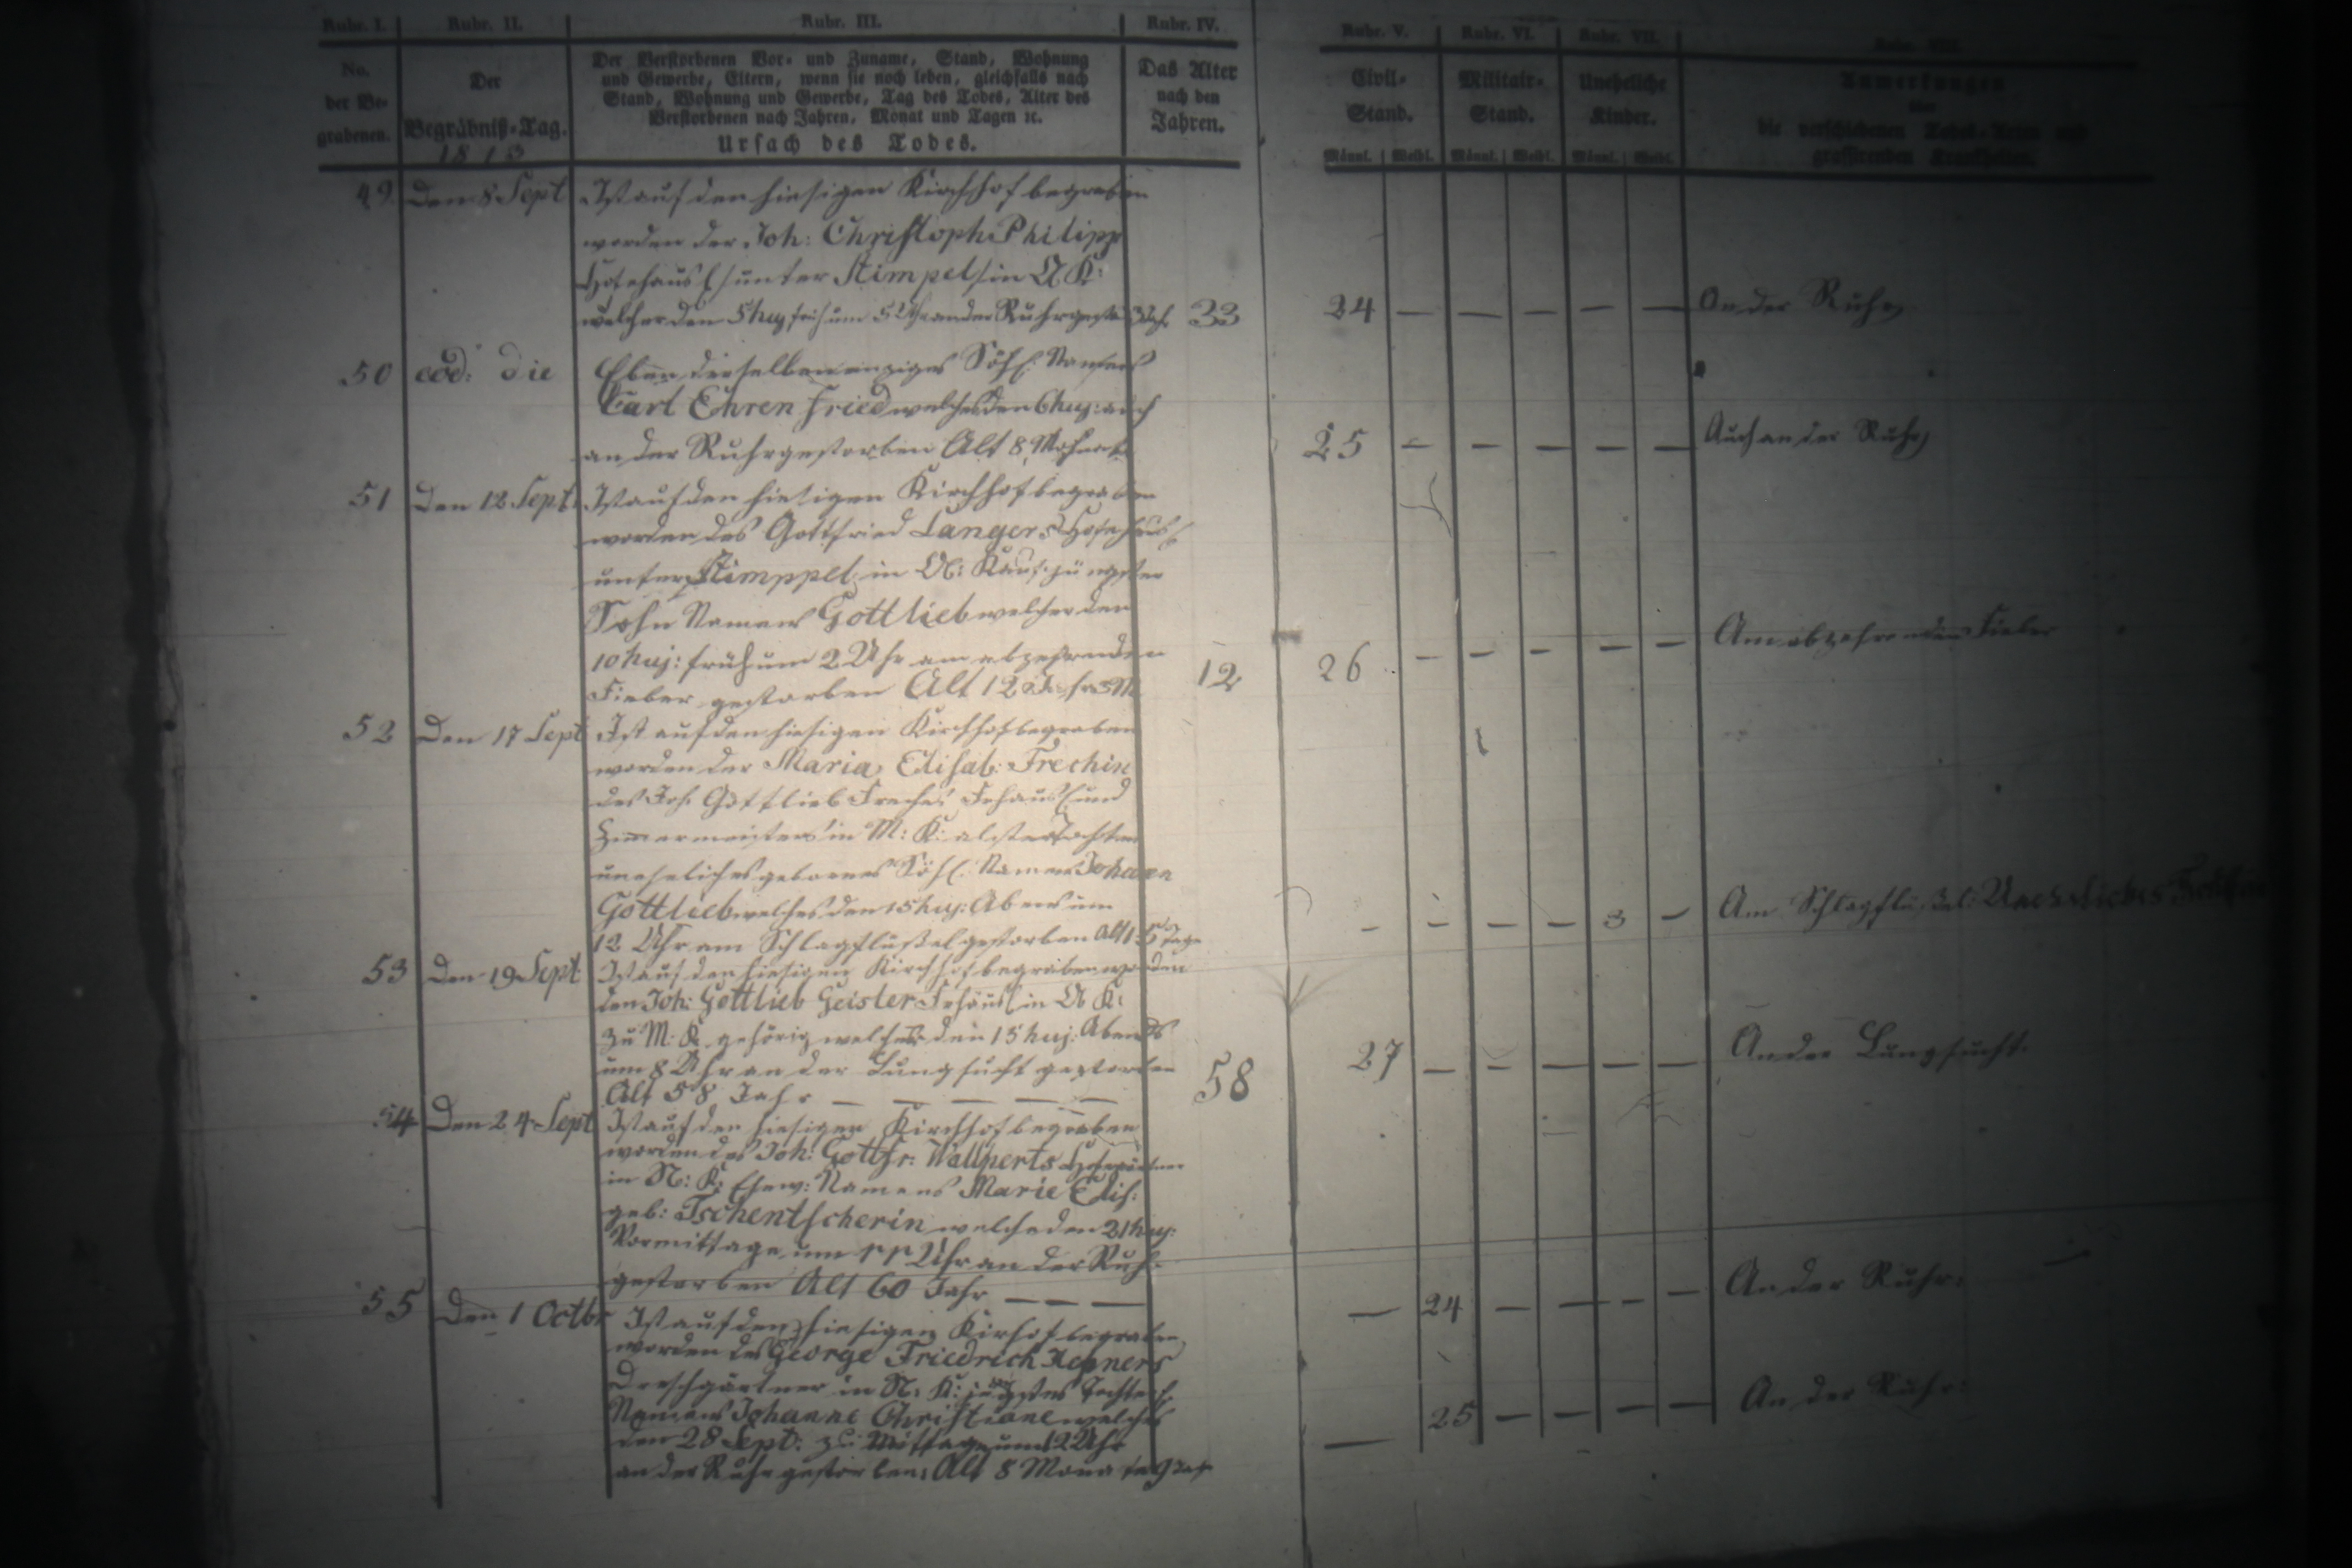 Rubr. I. Rubr. II. Rubr. III. Rubr. IV. Rubr. V. Rubr. VI. Rubr. VII.
No. der Be- grabenen.
Der Begräbniß-Tag. 1813
Der Verstorbenen Vor- und Zuname, Stand, Wohnung
und Gewerbe, Eltern, wenn sie noch leben, gleichfalls nach
Stand, Wohnung und Gewerbe, Tag des Todes, Alter des
Verstorbenen nach Jahren, Monat und Tagen ꝛc.
Ursach des Todes.
Das Alter nach den Jahren.
Civil- Stand.
Militair- Stand.
Uneheliche Kinder.
Anmerkungen
die verschiedenen Todes-Arten und
grassirenden Krankheiten.
Männl. Weibl. Männl. Weibl. Männl. Weibl.
49 Den 8 Sept Ist auf den hiesigen Kirchhof begraben
worden der Joh: Christoph Philipp
unter Stimpel in
welcher den 5 huj früh um 5 Uhr an der Ruhr 33 24 — — — — — An der Ruhr
50 eod: die Eben desselben einziges Söhl. Namens
Carl Ehrenfried welches den 6 huj: auch
an der Ruhr gestorben Alt 8 25 — — — — — Auch an der Ruhr
51 Den 12 Sept Ist auf den hiesigen Kirchhof begraben
worden des Gottfried Langers
unter Stimppel in jüngster
Sohn Namens Gottlieb welcher den
10 huj: früh um 2 Uhr am abzehrenden
Fieber gestorben Alt 12 12 26 — — — — — Am abzehrenden Fieber
52 Den 17 Sept Ist auf den hiesigen Kirchhof begraben
worden der Maria Elisab: Frechin
des Joh. Gottlieb und
in M: K:
uneheliches gebornes Söhl. Namens Johann
Gottlieb welches den 15 huj: Abens um
12 Uhr am gestorben Alt Tage — — — — 3 — Am
53 Den 19 Sept Ist auf den hiesigen Kirchhof begraben worden
den Joh: Gottlieb Geisler in K:
zu M. K. gehörig welcher den 15 huj: Abends
um 8 Uhr an der Lungsucht gestorben
Alt 58 Jahr — — — — — 58 27 — — — — — An der Lungsucht.
54 Den 24 Sept Ist auf den hiesigen Kirchhof begraben
worden des Joh: Gottfr: Wallperts
in N: K: Ehew: Namens Marie Elis:
geb: Tschentscherin welche den 21 huj:
Vormittage um 11 Uhr an der Ruhr
gestorben Alt 60 Jahr — — — — 24 — — — — An der Ruhr.
55 Den 1 Octbr Ist auf den hiesigen Kirhof begraben
worden des George Friedrich
Dreschgärtner in N: K: jüngstes
Namens Johanne Christiane welches
den 28 Sept: zu Mittage um 12 Uhr — 25 — — — — An der Ruhr.
an der Ruhr gestorben, Alt 8 Monate 9